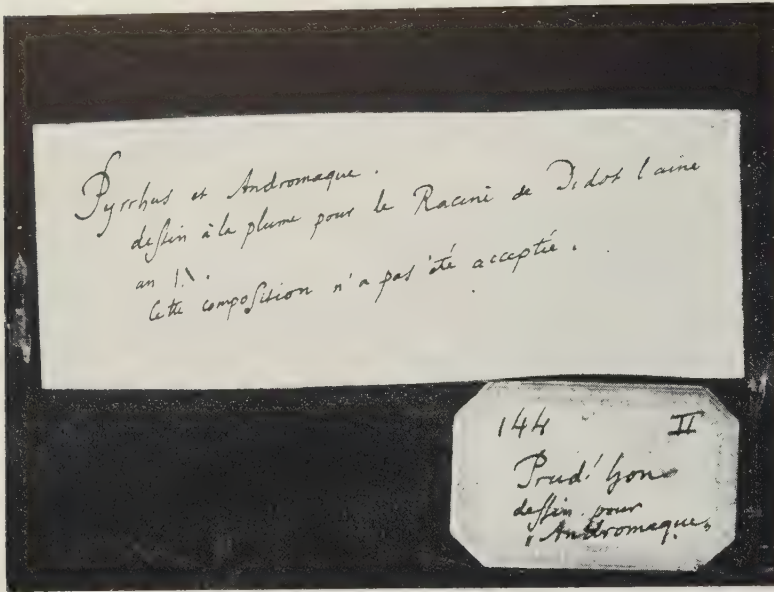 Pyrrhus et Andromaque.
deſſin à la plume pour le Racine de Didot l'ainé
an IX.
Cette compoſition n'a pas été acceptée.
144 II
Prud'hon
deſſin pour
"Andromaque"